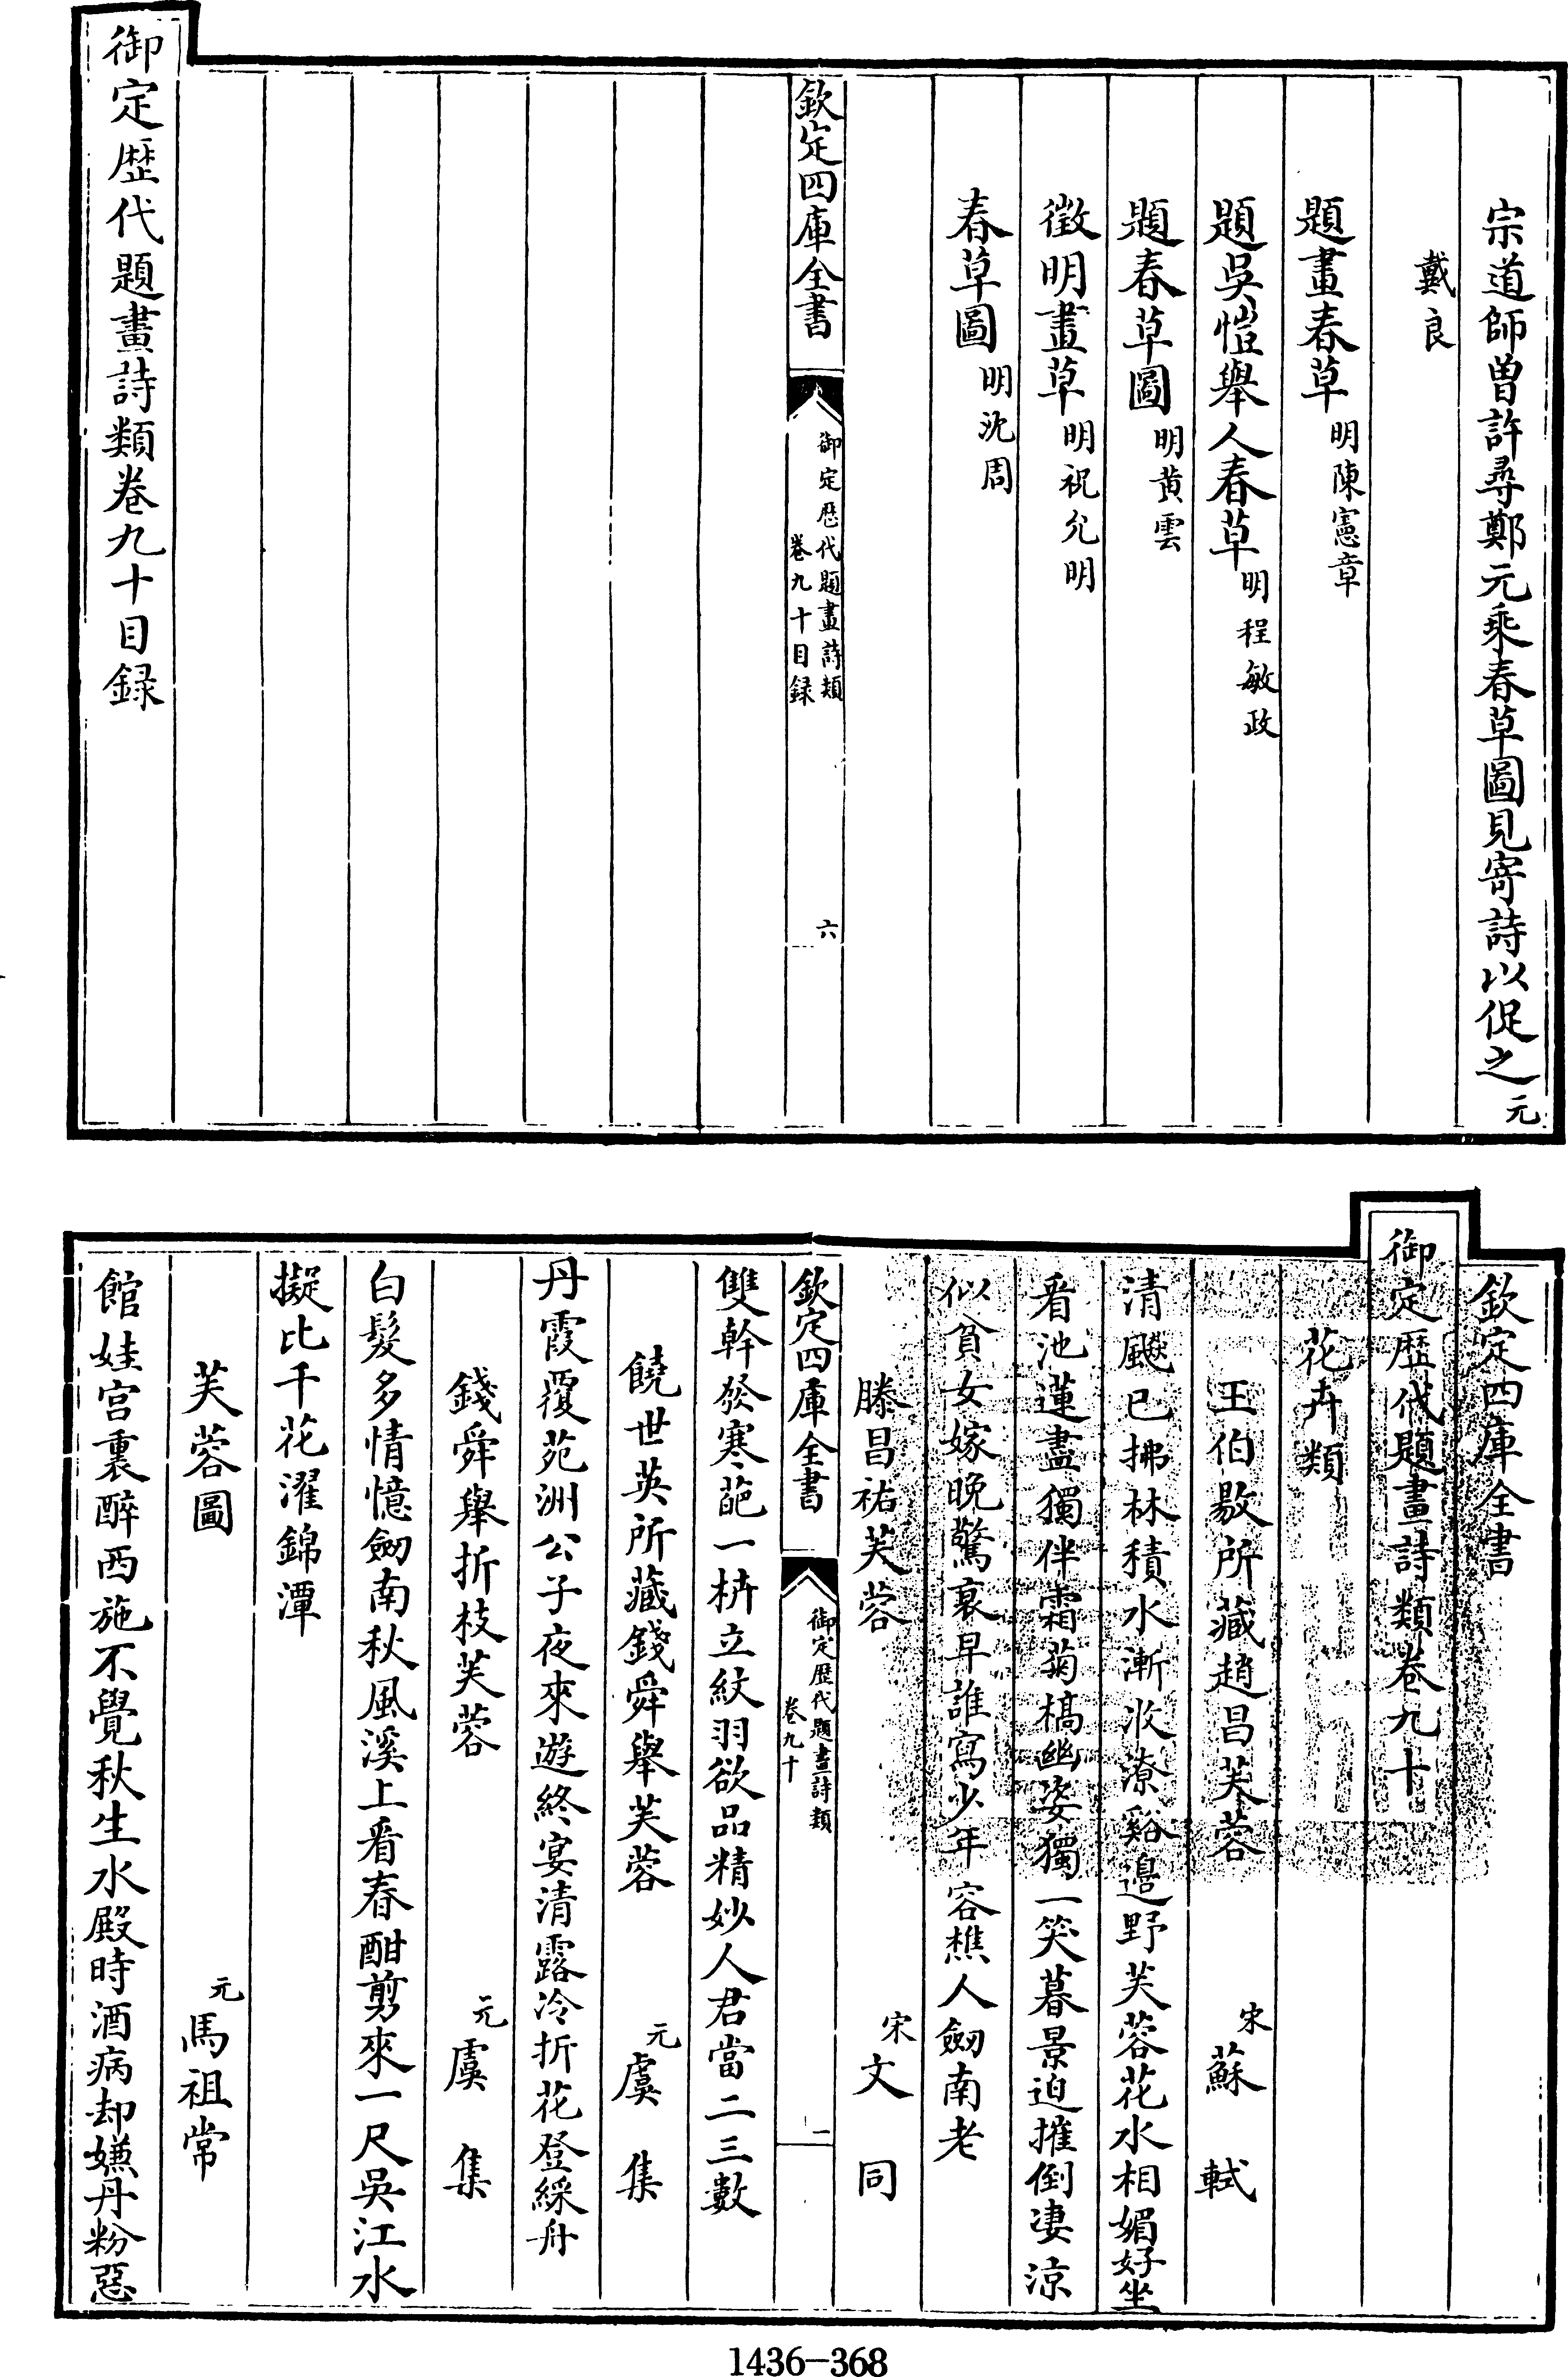 宗道師曾許尋鄭元秉春草圖見寄詩以促之元
戴良
題畫春草明陳憲章
題吳愷舉人春草明程敏政
題春草圖明黄雲
徵明畫草明祝允明
春草圖明沈周
欽定四庫全書
御定歴代題畫詩類
卷九十目録
六
御定歴代題畫詩類卷九十目録
欽定四庫全書
御定歴代題畫詩類卷九十
花卉類
王伯敭所藏趙昌芙蓉 宋蘇軾
清飈已拂林積水漸收潦谿邉野芙蓉花水相媚好坐
看池蓮盡獨伴霜菊槁幽姿獨一笑暮景迫摧倒凄涼
似貧女嫁晚驚衰早誰寫少年容樵人劒南老
滕昌祐芙蓉 宋文同
欽定四庫全書
御定歴代題畫詩類
卷九十
一
雙幹發寒葩一枿立紋羽欲品精妙人君當二三數
饒世英所藏錢舜舉芙蓉 元虞集
丹霞覆苑洲公子夜來遊終宴清露冷折花登綵舟
錢舜舉折枝芙蓉 元虞集
白髮多情憶劒南秋風溪上看春酣剪來一尺吳江水
擬比千花濯錦潭
芙蓉圖 元馬祖常
館娃宫裏醉西施不覺秋生水殿時酒病却嫌丹粉惡
1436-368